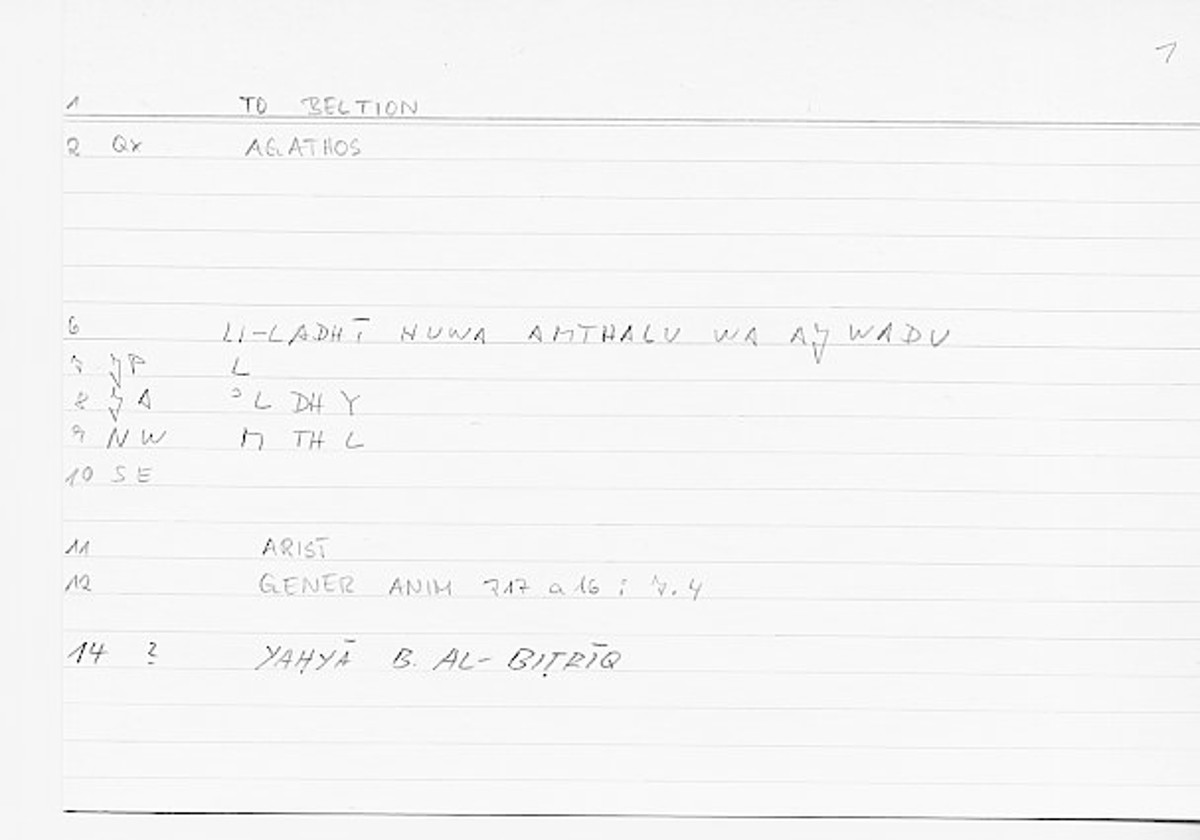 1
1 TO BELTION
2 Qx AGATHOS
6 LI-LADHĪ HUWA AMTHALU WA AJWADU
7 JP L
8 JA ʾL DH Y
9 NW M TH L
10 SE
11 ARIST
12 GENER ANIM 717 a 16 ; 7.4
14 ? YAḤYĀ B. AL-BIṬRĪQ